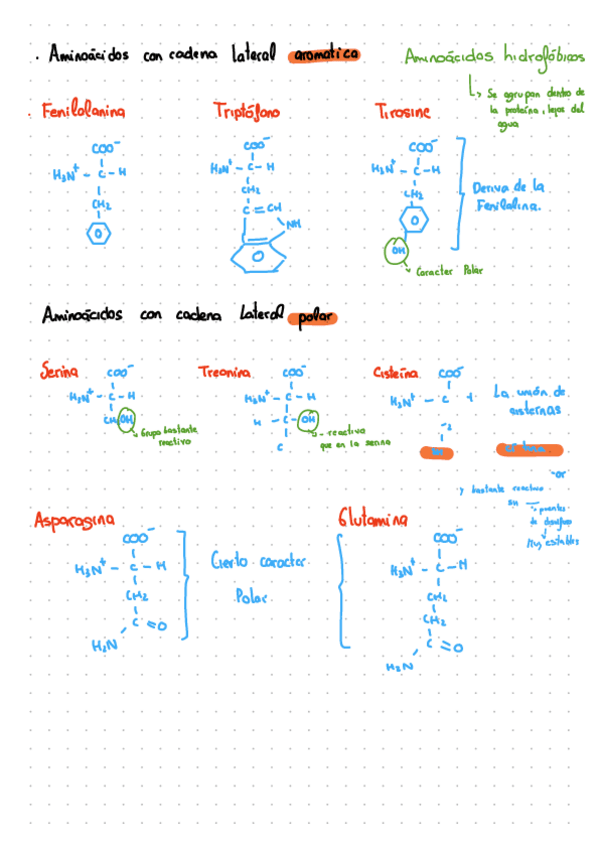 . Aminoácidos con cadena lateral aromatica
Aminoácidos hidrofóbicos
↳ Se agrupan dentro de
la proteína, lejos del
agua
. Fenilalanina
Triptófano
Tirosine
COO⁻
H₃N⁺ - C - H
CH₂
COO⁻
H₃N⁺ - C - H
CH₂
C = CH
NH
COO⁻
H₃N⁺ - C - H
CH₂
OH
Deriva de la
Fenilalina.
Caracter Polar
Aminoácidos con cadena lateral polar
Serina
COO⁻
H₃N⁺ - C - H
CH OH
Grupo bastante
reactivo
Treonina
COO⁻
H₃N⁺ - C - H
H - C - OH
C
- reactivo
que en la serina
Cisteína
COO⁻
H₃N⁺ - C
2
La unión de
cisternas
or
y bastante reactivo
su
puentes
de
Muy estables
Asparagina
COO⁻
H₃N⁺ - C - H
CH₂
C = O
H₂N
Cierto caracter
Polar
Glutamina
COO⁻
H₃N⁺ - C - H
CH₂
CH₂
C = O
H₂N